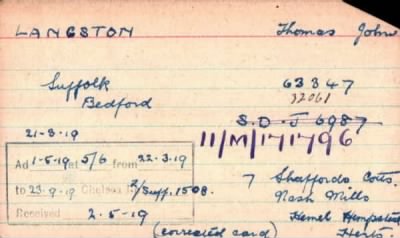 LANGSTON Thomas John
Suffolk 63347
Bedford 32061
S.D.J 6987
21-3-19
11/M/171796
Ad 1-5-19 at 5/6 from 22-3-19
to 23-9-19 Chelsea 2/Suff. 1508.
7 Shaffords Cotts.
Received 2-5-19 Nash Mills
Hemel Hempstead
(corrected card) Herts.